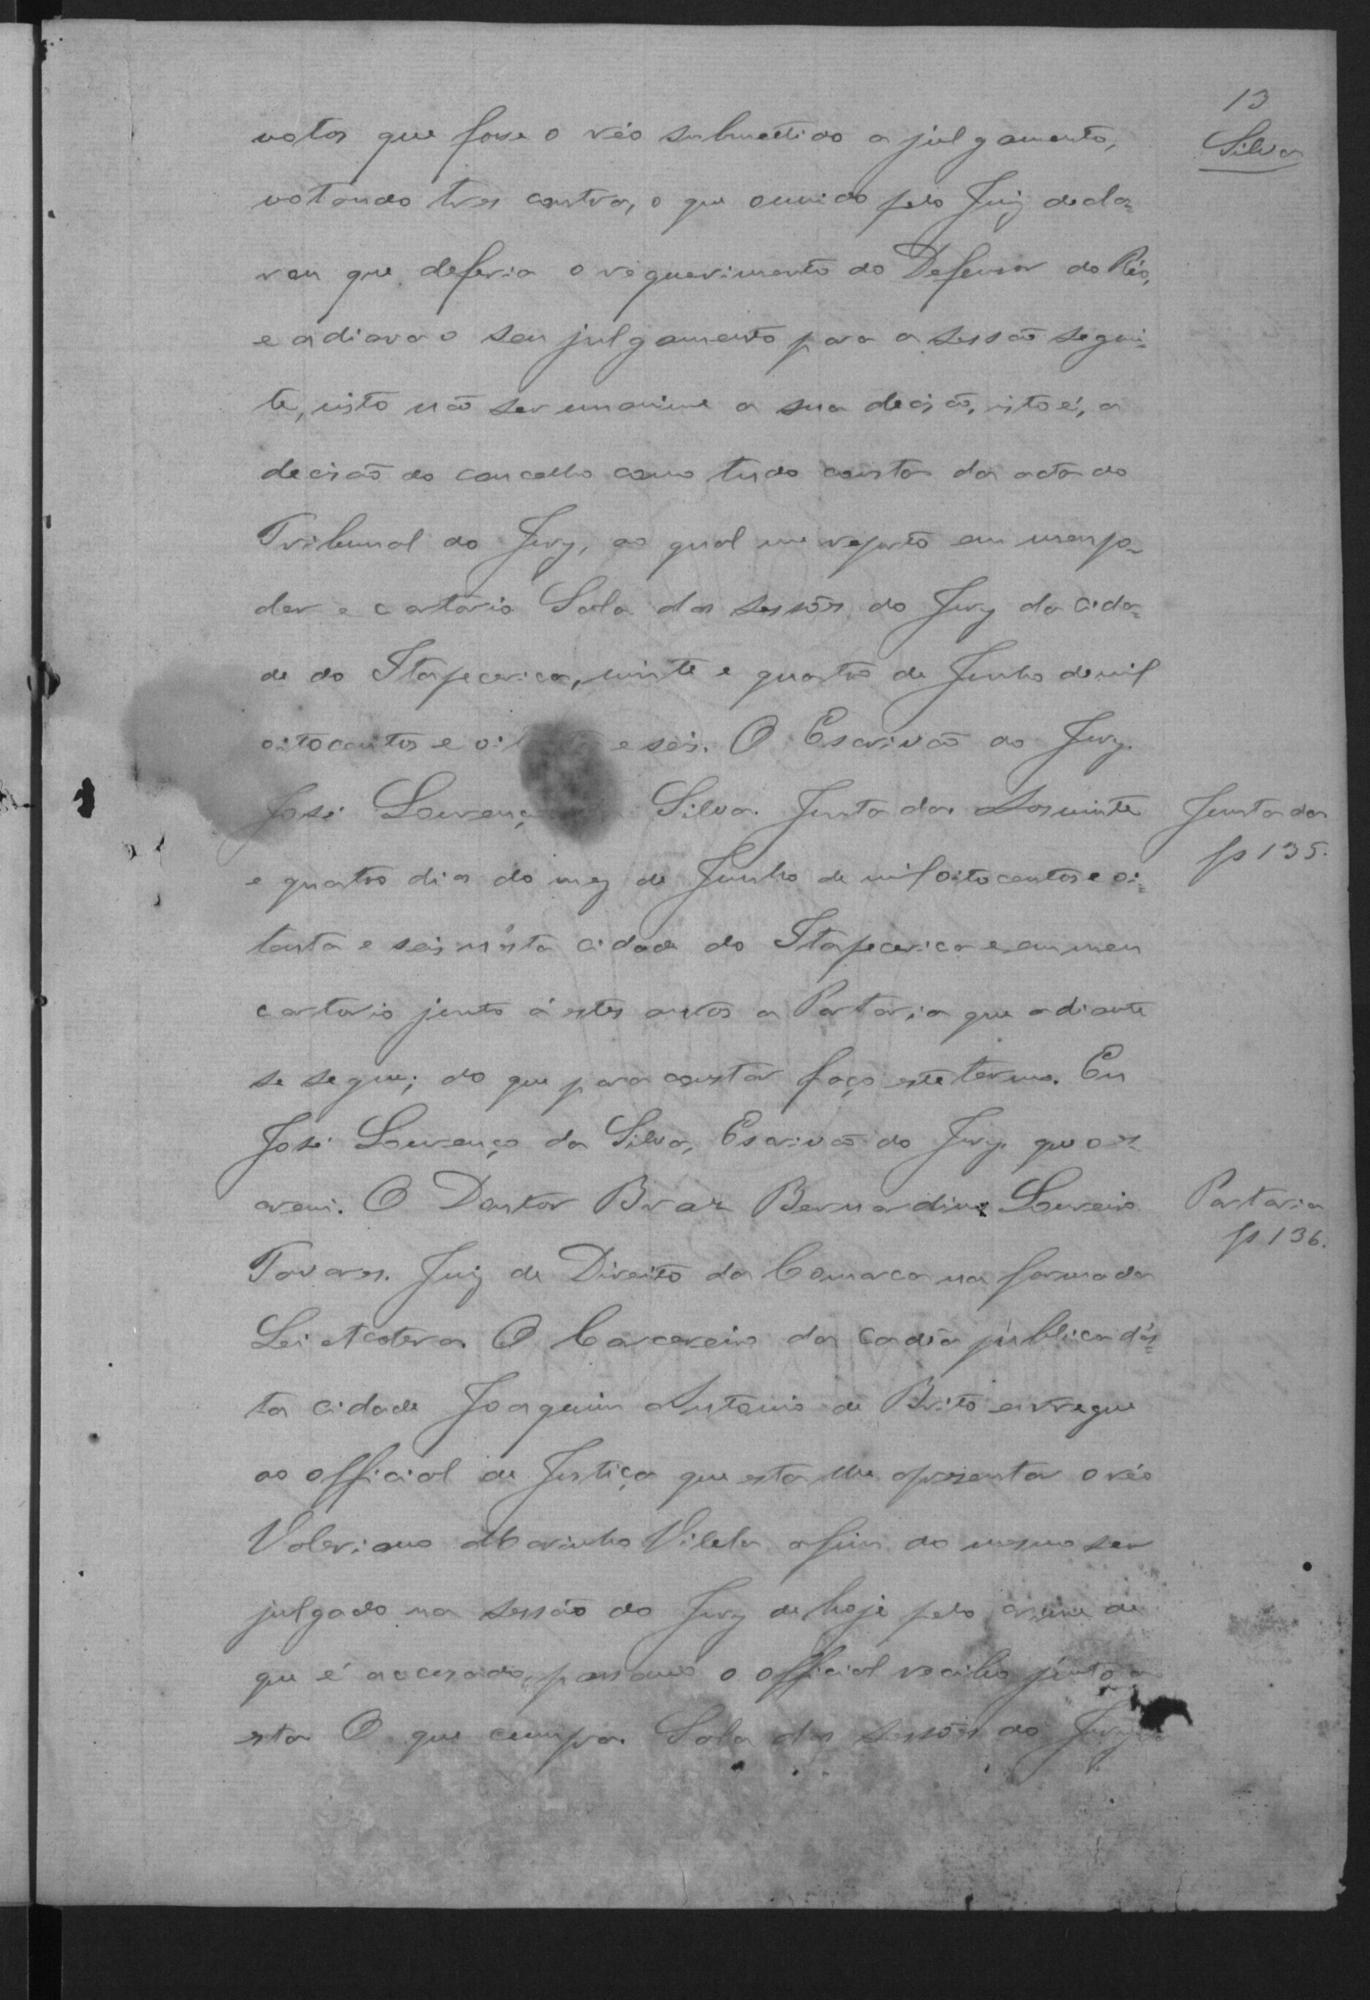 13
Silva
votos que fosse o réo submettido a julgamento,
votando tres contra, o que ouvido pelo Juiz decla=
rou que deferia o requerimento do Defensor do Réo,
e adiava o seu julgamento para a sessão seguin=
te, visto não ser unanime a sua decisão, isto é, a
decisão do concelho como tudo consta da acta do
Tribunal do Jury, ao qual me reporto em meu po=
der e cartorio Sala das sessões do Jury da cida=
de do Itapecerica, vinte e quatro de Junho de mil
oitocentos e oi e seis. O Escrivão do Jury.
José Lourenço Silva. Juntada. Aos vinte
e quatro dias do mez de Junho de mil oitocentos e oi=
tenta e seis n'esta cidade do Itapecerica e em meu
cartorio junto á estes autos a Portaria que adiante
se segue; do que para constar faço este termo. Eu
José Lourenço da Silva, Escrivão do Jury que o es=
crevi. O Doutor Braz Bernardino Loureiro
Tavares. Juiz de Direito da Comarca na forma da
Lei etcetera. O Carcereiro da cadêa publica d'es=
ta cidade Joaquim Antonio de Brito entregue
ao official de Justiça que esta lhe apresentar o réo
Valeriano Marinho Vilela afim do mesmo ser
julgado na sessão do Jury de hoje pelo crime de
que é accusado, passando o official recibo junto a
esta O que cumpra. Sala das sessões do Jury
Juntada
fs 135.
Portaria
fs 136.